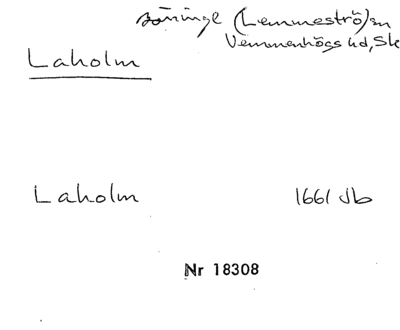 Sörringe (Lemmeströ)sn
Vemmenhögs hd, Sk
Laholm
Laholm 1661 Jb
Nr 18308